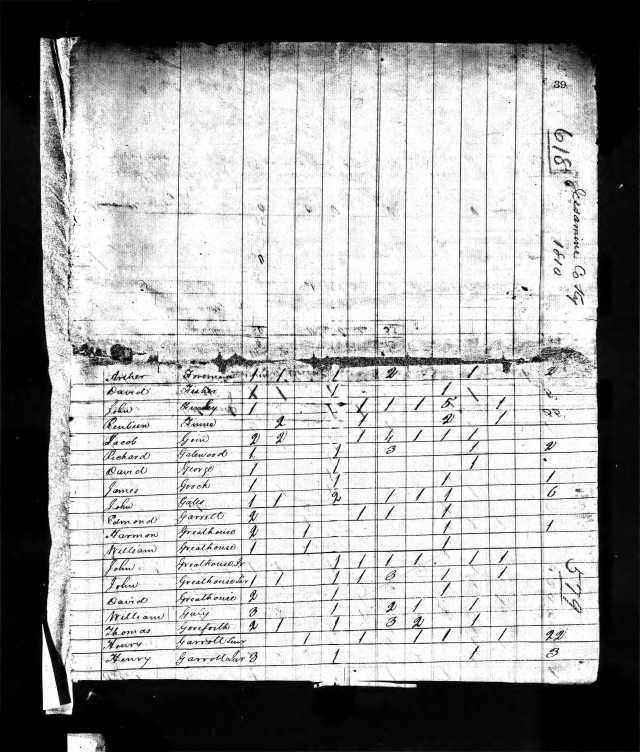 39
618
Jessamine Co Ky
1810
Archer 1 1 1 2 1 2
David Fisher 1 1 1 1 1
John 1 1 1 1 1 5 1 8
Reubin 2 1 2 1
Jacob Goin 2 2 1 4 1 1 1
Richard Gatewood 1 1 3 1 2
David George 1 1 1
James Gooch 1 1 1 1
John Gates 1 1 2 1 1 1 6
Edmond Garrett 2 1 1 1
Harmon Greathouse 2 1 1 1
William Greathouse 1 1 1
John Greathouse Sr 1 1 1 1 1 1 1
John Greathouse Jur 1 1 1 1 3 1 1
David Greathouse 2 1 1
William Gary 3 1 2 1 1
Thomas Gosforth 2 1 1 3 2 1
Henry Garrott Senr 1 1 1 1 1 1 22
Henry Garrott Jur 3 1 1 3
579